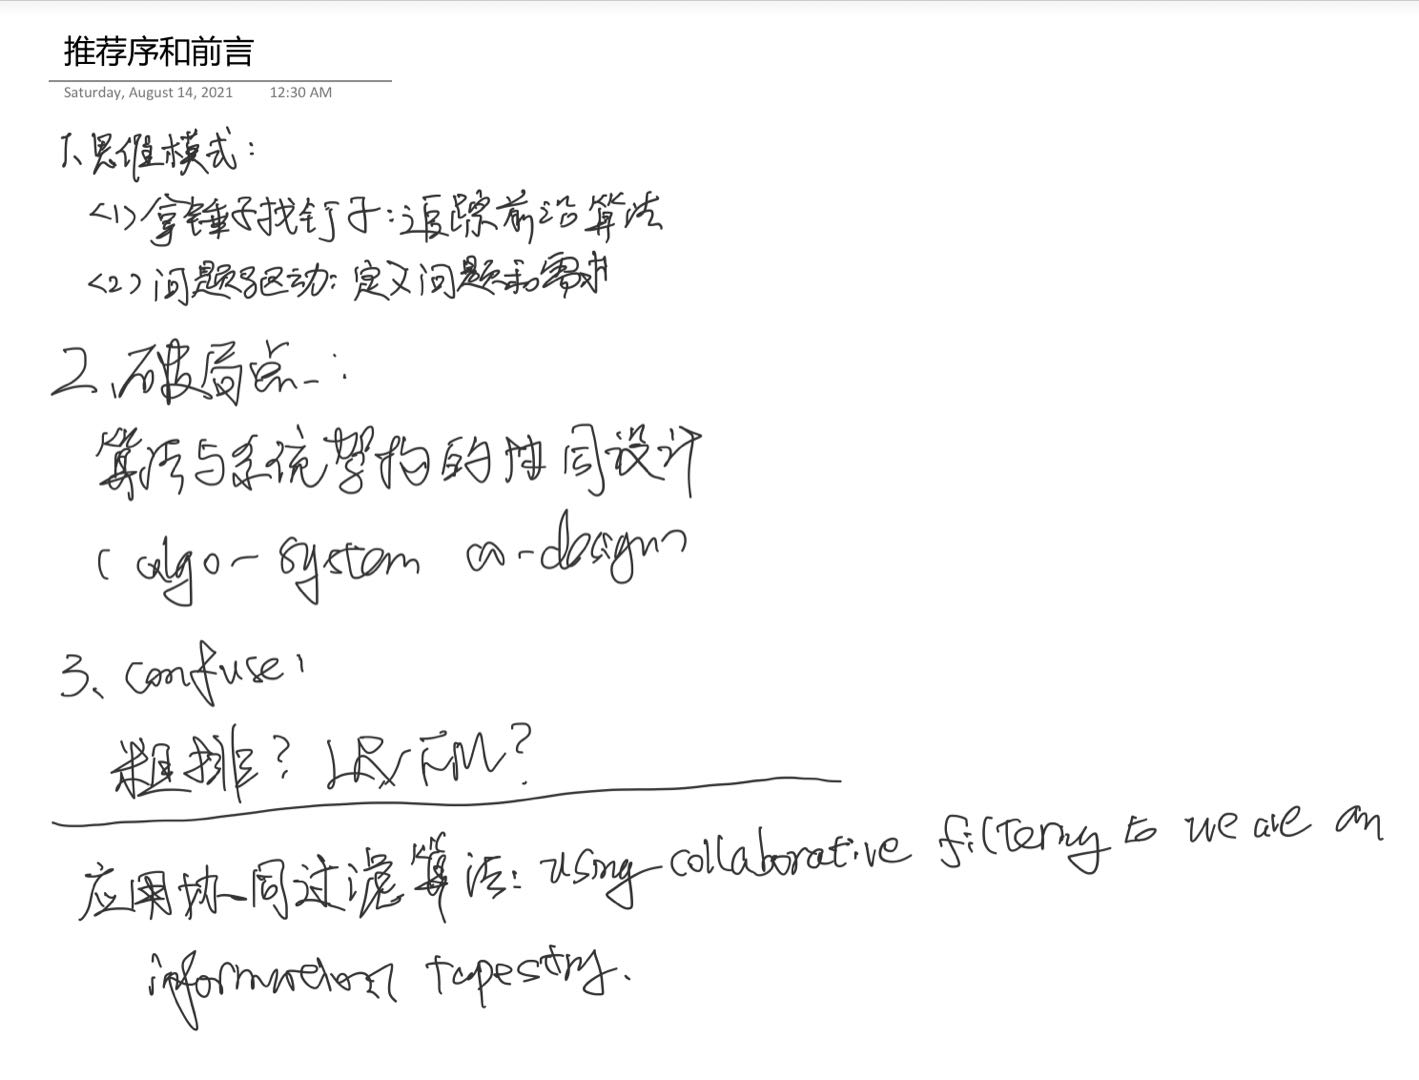 推荐序和前言
Saturday, August 14, 2021 12:30 AM
1、思维模式：
<1> 拿锤子找钉子：追踪前沿算法
<2> 问题驱动：定义问题和需求
2、破局点：
算法与系统架构的协同设计
(algo-system co-design)
3、confuse:
粗排？LR/FM？
应用协同过滤算法：using collaborative filtering to weave an
information tapestry.